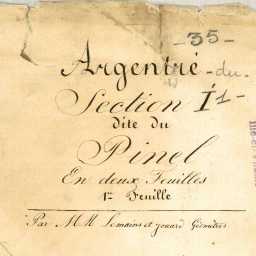 - 35 -
Argentré - du -
Section I 1 -
dite du
Pinel
En deux Feuilles
1re Feuille
Par MM Lemains et jouard Géomètres